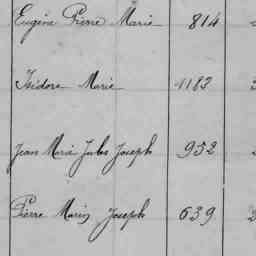 Eugène Pierre Marie 814
Isidore Marie 1183
Jean Marie Jules Joseph 952
Pierre Marie Joseph 639